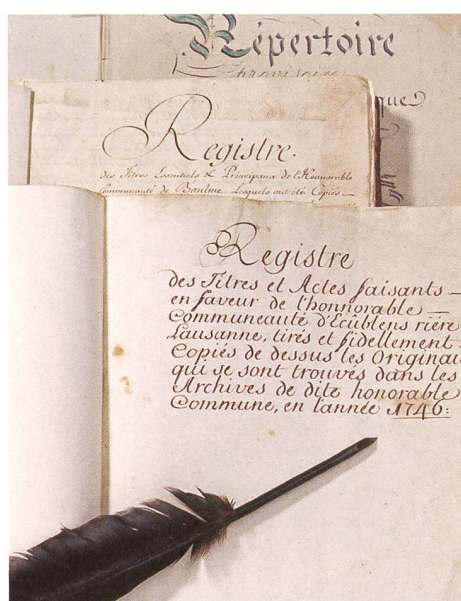 Répertoire
que
Registre.
des Titres Essentiels & Principaux de l'Honnorable
Communauté de Baulme Lesquels ont été Copiés
Registre
des Titres et Actes faisants
en faveur de l'honnorable
Communeauté d'Ecublens riere
Lausanne, tirés et fidellement
Copiés de dessus les Originau
qui se sont trouvés dans les
Archives de dite honorable
Commune, en l'année 1746: